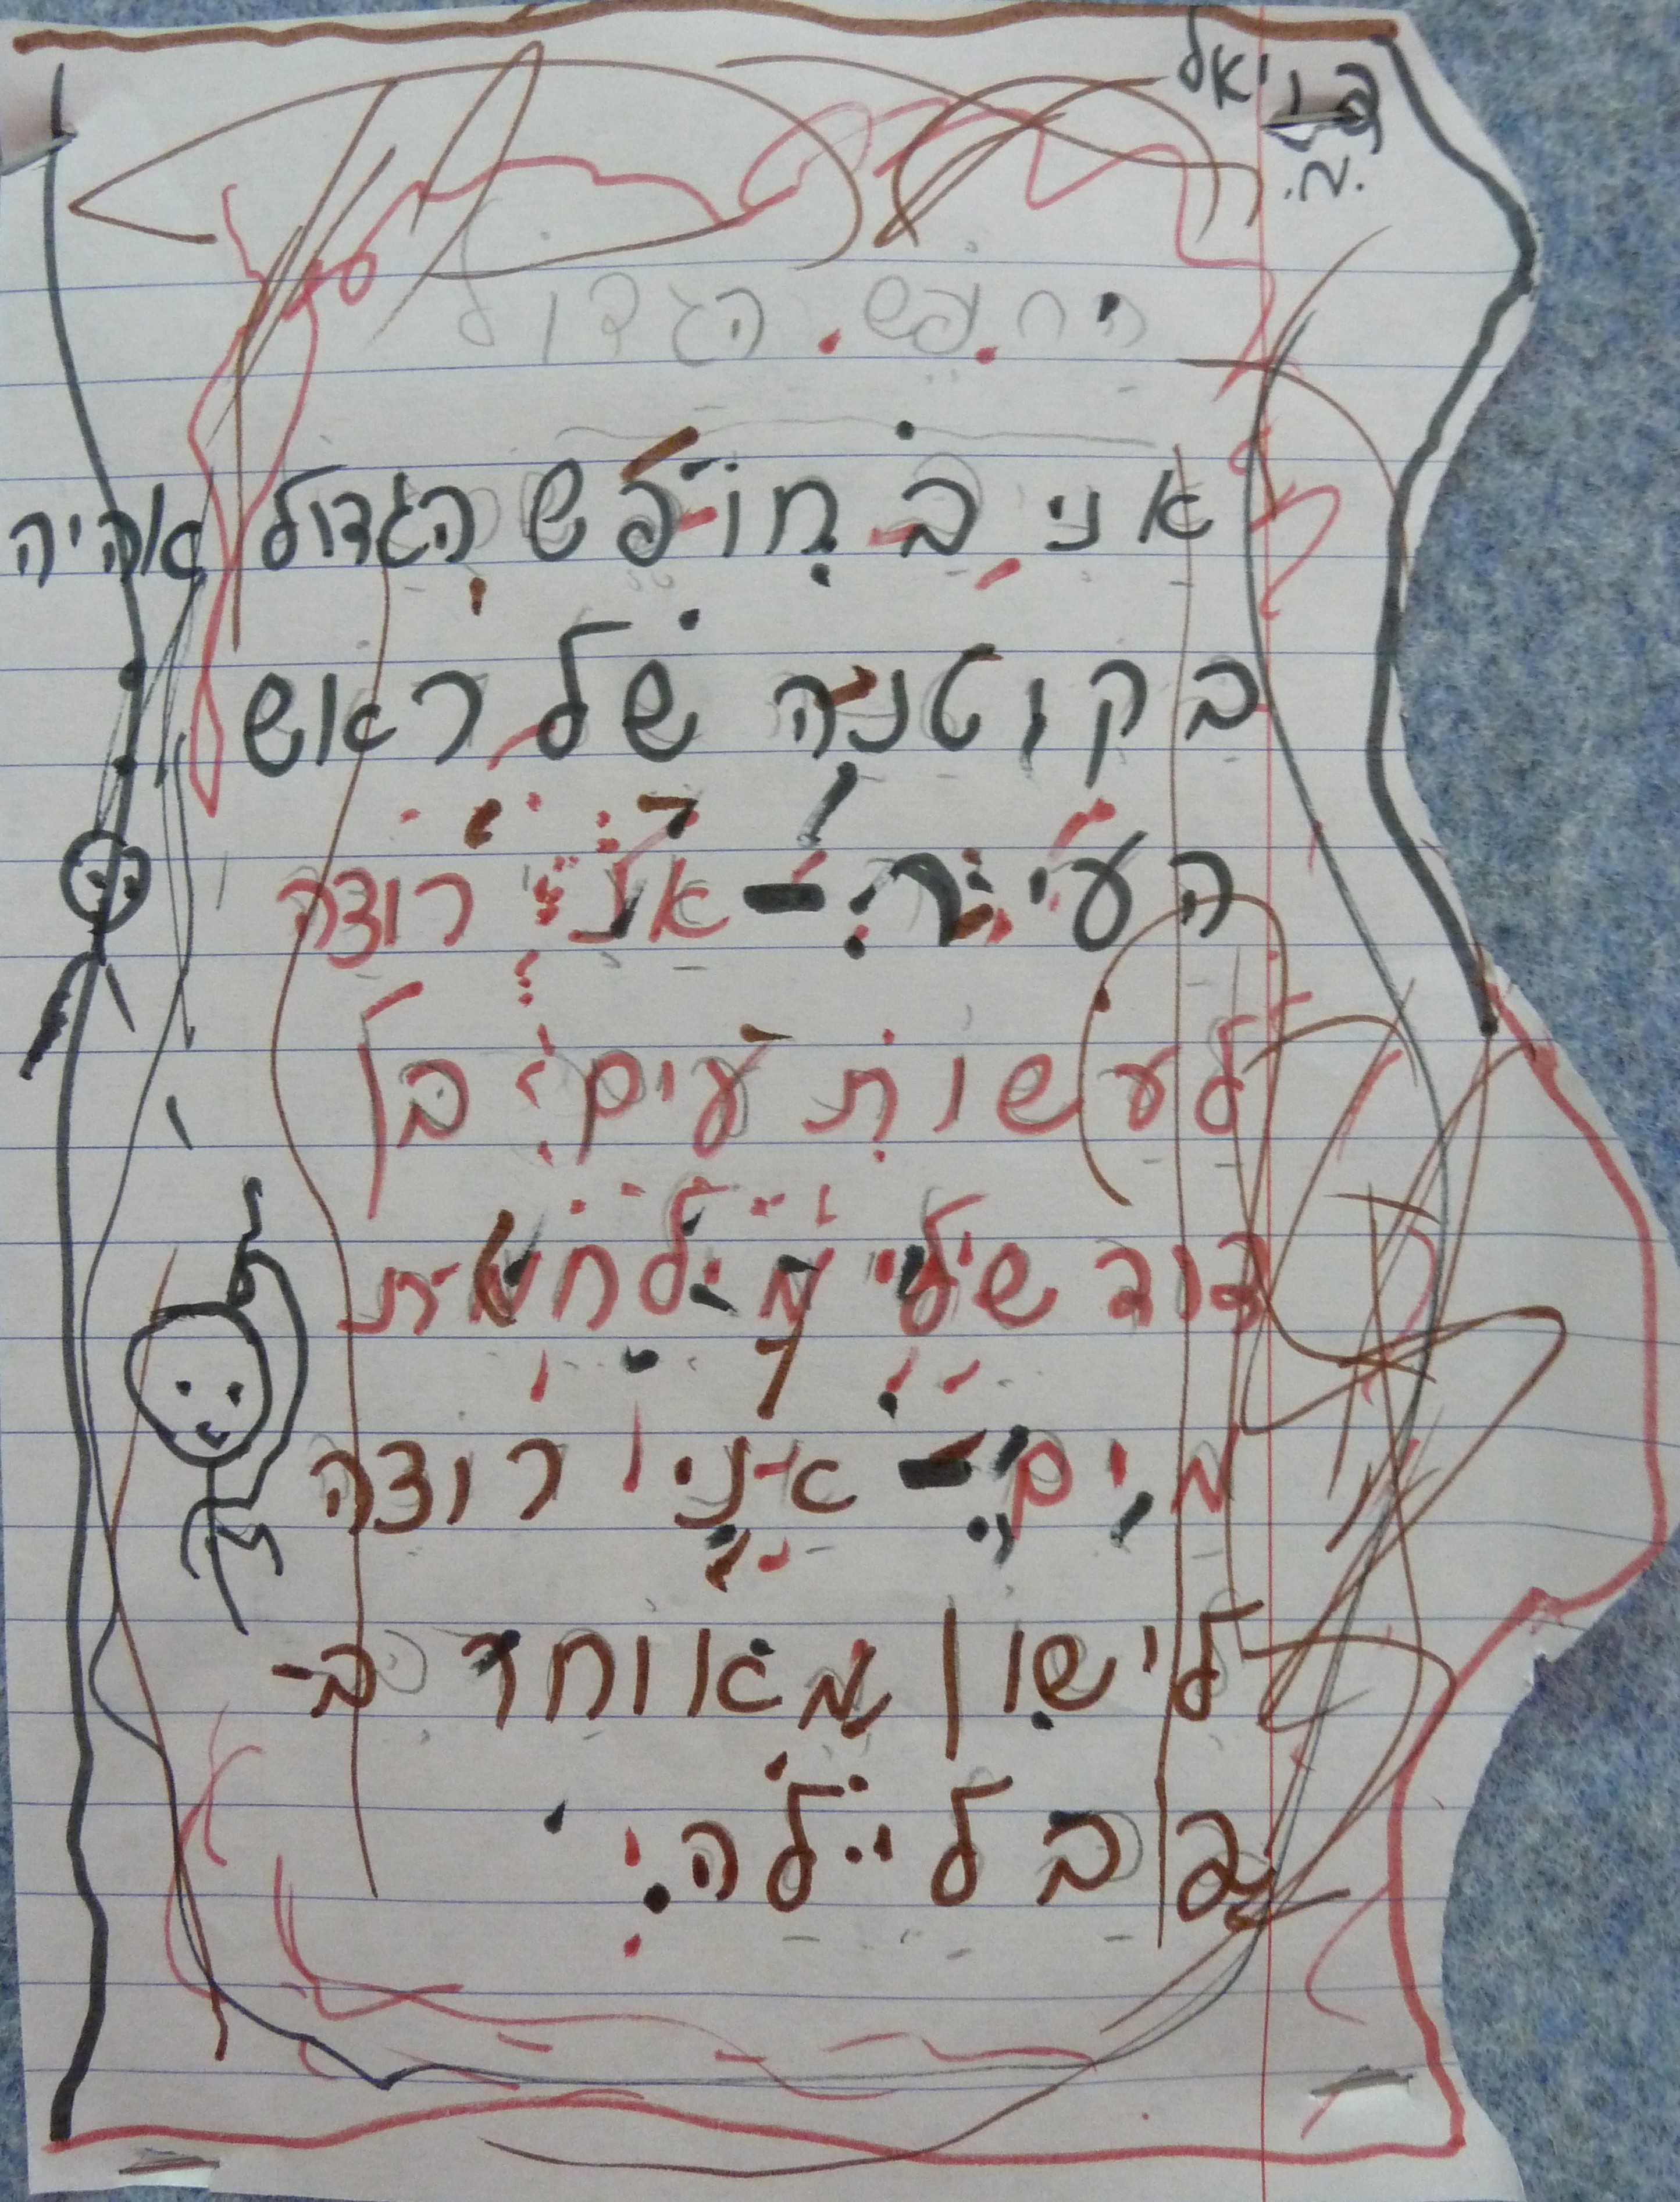 בניאל
מ.
החפש הגדול
אני בחופש הגדול אהיה
בקוטנה של ראש
העיר - אני רוצה
לעשות עים בן
דוד שלי מילחמת
מים - אני רוצה
לישון מאוחר ב-
בבליילה.